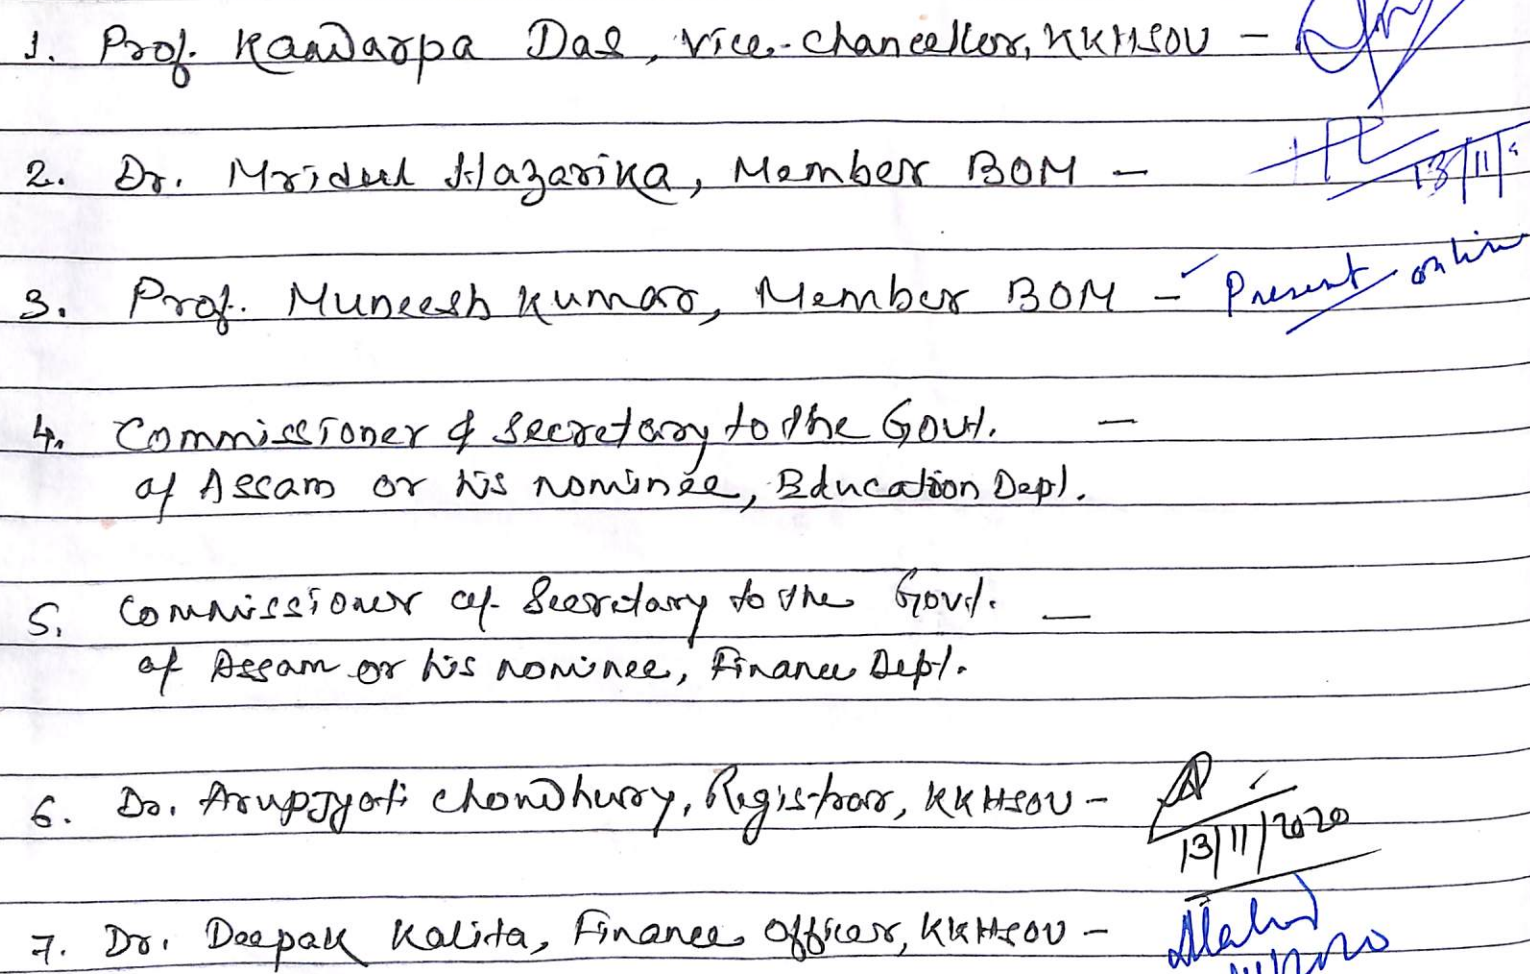 1. Prof. Kandarpa Das, Vice-Chancellor, KKHSOU –
2. Dr. Mridul Hazarika, Member BOM – 13/11/
3. Prof. Muneesh Kumar, Member BOM – Present online
4. Commissioner & Secretary to the Govt. –
of Assam or his nominee, Education Dept.
5. Commissioner & Secretary to the Govt. –
of Assam or his nominee, Finance Dept.
6. Dr. Arupjyoti Chowdhury, Registrar, KKHSOU –
13/11/2020
7. Dr. Deepak Kalita, Finance Officer, KKHSOU –